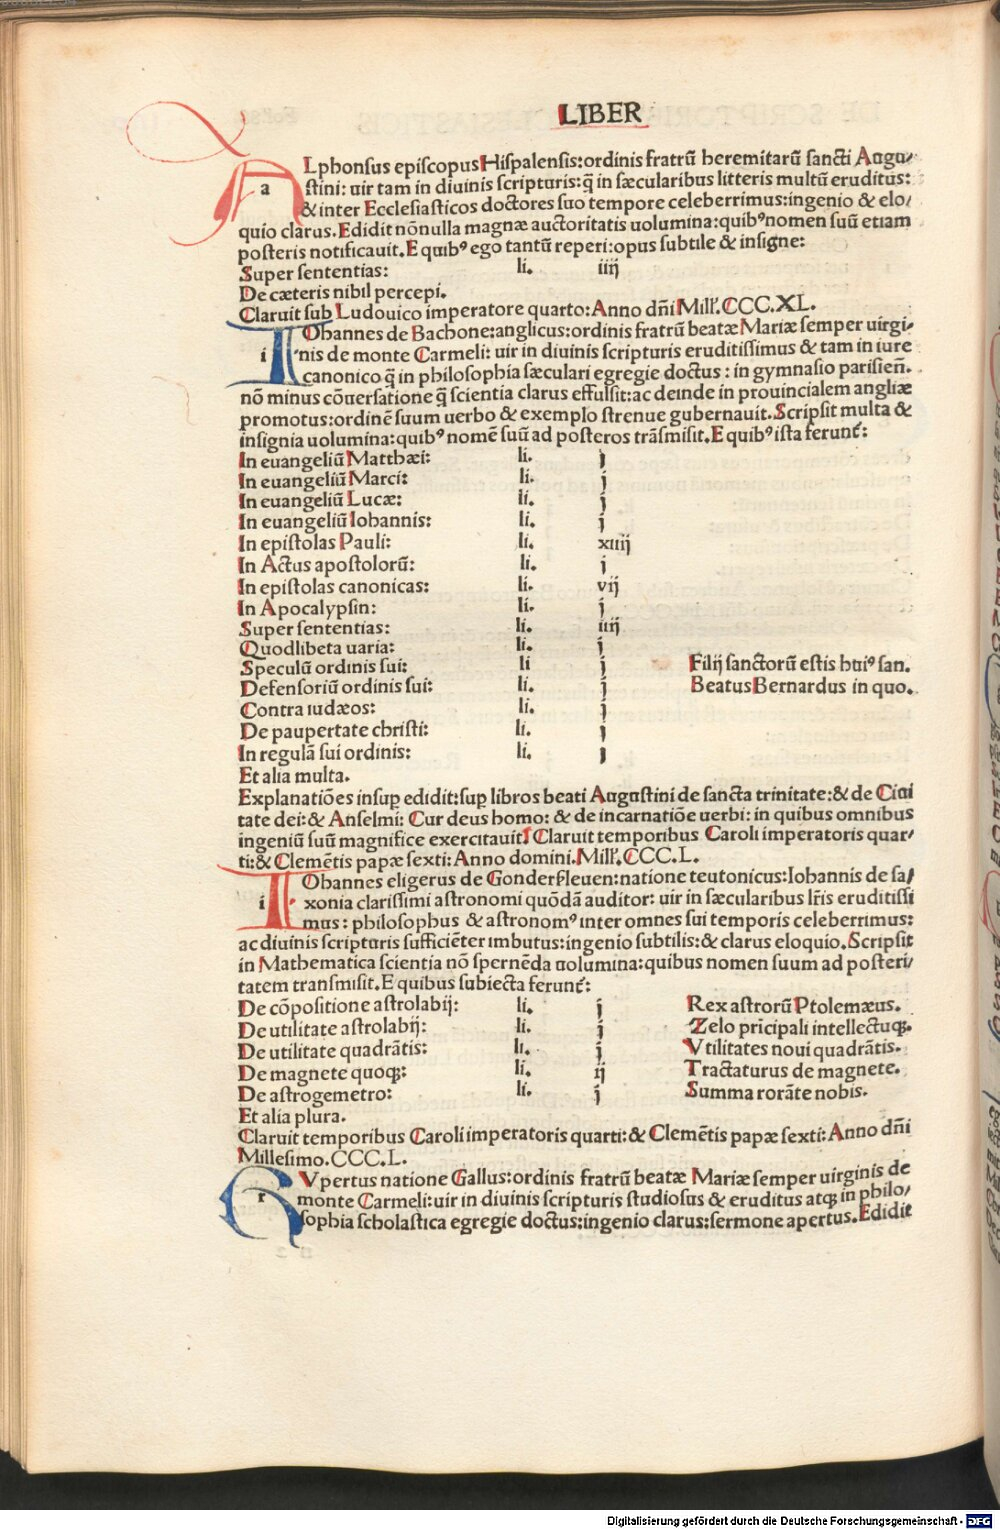 LIBER
ALphonsus episcopus Hispalensis:ordinis fratrū heremitarū sancti Augu/
a stini: uir tam in diuinis scripturis:q̄ in sæcularibus litteris multū eruditus:
& inter Ecclesiasticos doctores suo tempore celeberrimus:ingenio & elo/
quio clarus.Edidit nōnulla magnæ auctoritatis uolumina:quibꝰ nomen suū etiam
posteris notificauit.E quibꝰ ego tantū reperi:opus subtile & insigne:
Super sententias: li. iiij
De cæteris nihil percepi.
Claruit sub Ludouico imperatore quarto:Anno dñi Mill'.CCC.XL.
IOhannes de Bachone:anglicus:ordinis fratrū beatæ Mariæ semper uirgi/
i nis de monte Carmeli: uir in diuinis scripturis eruditissimus & tam in iure
canonico q̄ in philosophia sæculari egregie doctus: in gymnasio parisieñ.
nō minus cōuersatione q̄ scientia clarus effulsit:ac deinde in prouincialem angliæ
promotus:ordinē suum uerbo & exemplo strenue gubernauit.Scripsit multa &
insignia uolumina:quibꝰ nomē suū ad posteros trāsmisit.E quibꝰ ista ferunt̄:
In euangeliū Matthæi: li. j
In euangeliū Marci: li. j
In euangeliū Lucæ: li. j
In euangeliū Iohannis: li. j
In epistolas Pauli: li. xiiij
In Actus apostolorū: li. j
In epistolas canonicas: li. vij
In Apocalypsin: li. j
Super sententias: li. iiij
Quodlibeta uaria: li. j
Speculū ordinis sui: li j Filij sanctorū estis huiꝰ san.
Defensoriū ordinis sui: li. j Beatus Bernardus in quo.
Contra iudæos: li. j
De paupertate christi: li. j
In regulā sui ordinis: li. j
Et alia multa.
Explanatiōes insuꝑ edidit:suꝑ libros beati Augustini de sancta trinitate:& de Ciui
tate dei:& Anselmi: Cur deus homo: & de incarnatiōe uerbi: in quibus omnibus
ingeniū suū magnifice exercitauit. Claruit temporibus Caroli imperatoris quar/
ti:& Clemētis papæ sexti:Anno domini.Mill'.CCC.L.
IOhannes eligerus de Gondersleuen:natione teutonicus:Iohannis de sa/
i xonia clarissimi astronomi quōdā auditor: uir in sæcularibus lr̄is eruditissi
mus: philosophus & astronomꝰ inter omnes sui temporis celeberrimus:
ac diuinis scripturis sufficiēter imbutus:ingenio subtilis:& clarus eloquio.Scripsit
in Mathematica scientia nō spernēda uolumina:quibus nomen suum ad posteri/
tatem transmisit.E quibus subiecta ferunt̄:
De cōpositione astrolabij: li. j Rex astrorū Ptolemæus.
De utilitate astrolabij: li. j Zelo pricipali intellectuqꝫ.
De utilitate quadrātis: li. j Vtilitates noui quadrātis.
De magnete quoqꝫ: li. ij Tractaturus de magnete.
De astrogemetro: li. j Summa rorāte nobis.
Et alia plura.
Claruit temporibus Caroli imperatoris quarti:& Clemētis papæ sexti:Anno dñi
Millesimo.CCC.L.
RVpertus natione Gallus:ordinis fratrū beatæ Mariæ semper uirginis de
r monte Carmeli:uir in diuinis scripturis studiosus & eruditus atqꝫ in philo/
sophia scholastica egregie doctus:ingenio clarus:sermone apertus.Edidit
Digitalisierung gefördert durch die Deutsche Forschungsgemeinschaft - DFG